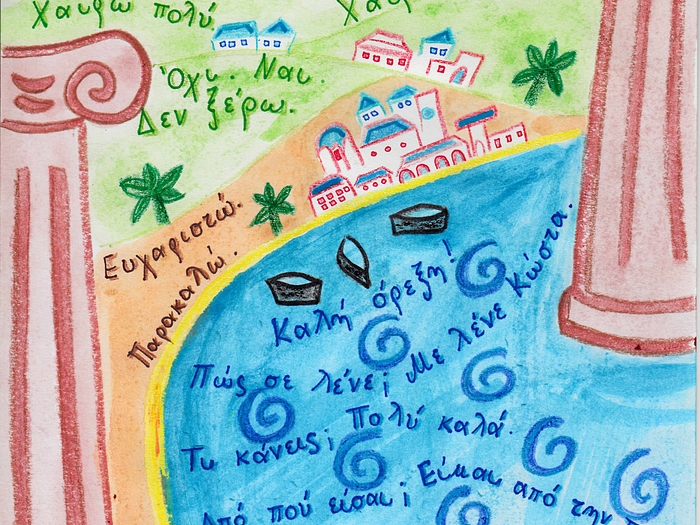 Χαίρω πολύ
Όχι. Ναι.
Δεν ξέρω.
Ευχαριστώ.
Παρακαλώ.
Καλή όρεξη!
Πώς σε λένε; Με λένε Κώστα.
Τι κάνεις; Πολύ καλά.
Από πού είσαι; Είμαι από την